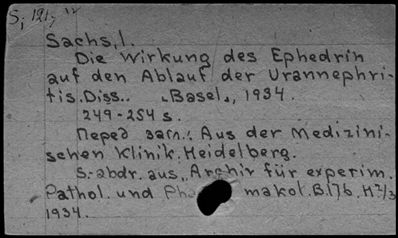 S, 121,
Sachs, I.
Die Wirkung des Ephedrin
auf den Ablauf der Urannephri-
tis. Diss.. Basel, 1934.
249-254 s.
Перед загл.: Aus der Medizini-
schen Klinik. Heidelberg.
S.-abdr. aus „Archiv für experim.
Pathol. und Pha makol. B.176. H 2/3
1934.